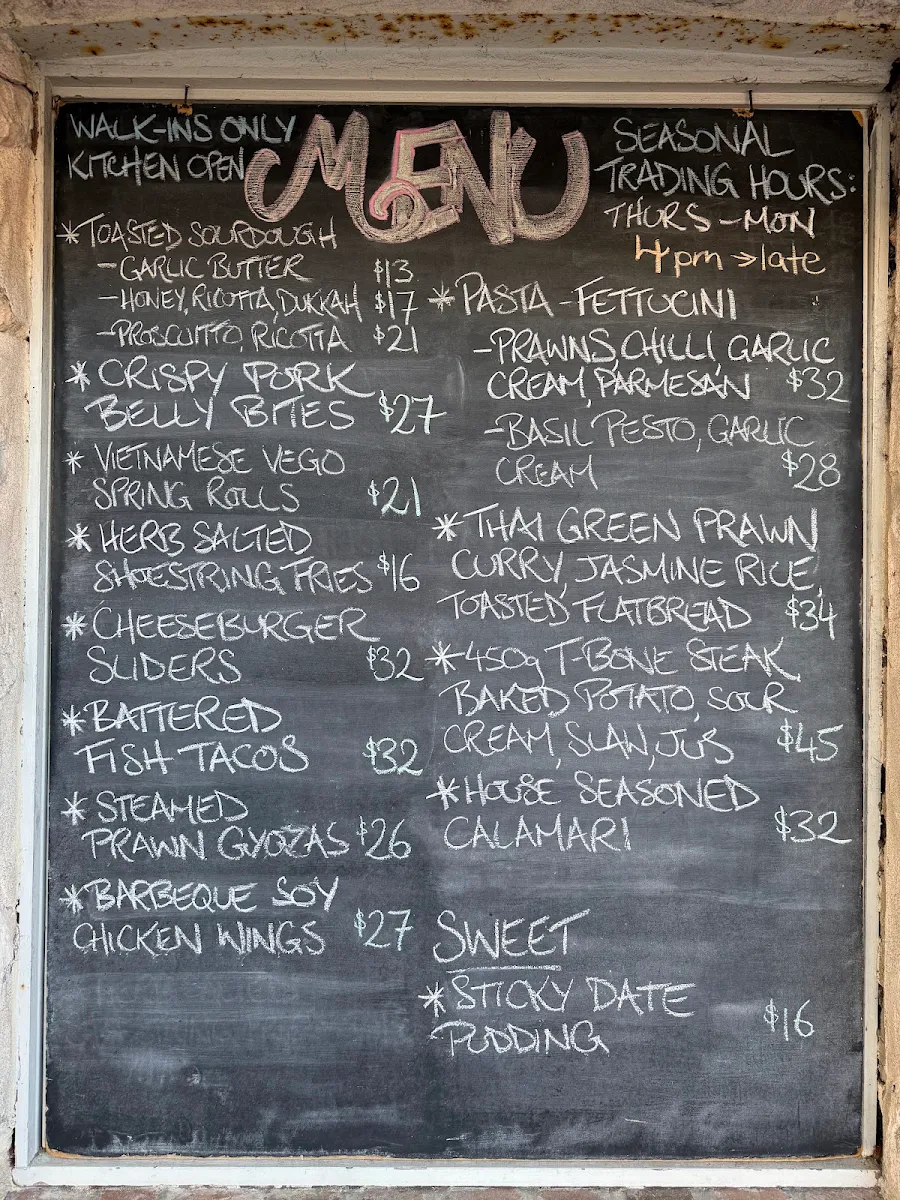 WALK-INS ONLY
KITCHEN OPEN
MENU
SEASONAL
TRADING HOURS:
THURS - MON
4pm → late
* TOASTED SOURDOUGH
- GARLIC BUTTER $13
- HONEY, RICOTTA, DUKKAH $17
- PROSCUITTO, RICOTTA $21
* CRISPY PORK
BELLY BITES $27
* VIETNAMESE VEGO
SPRING ROLLS $21
* HERB SALTED
SHOESTRING FRIES $16
* CHEESEBURGER
SLIDERS $32
* BATTERED
FISH TACOS $32
* STEAMED
PRAWN GYOZAS $26
* BARBEQUE SOY
CHICKEN WINGS $27
* PASTA - FETTUCINI
- PRAWNS, CHILLI, GARLIC
CREAM, PARMESAN $32
- BASIL PESTO, GARLIC
CREAM $28
* THAI GREEN PRAWN
CURRY, JASMINE RICE,
TOASTED FLATBREAD $34
* 450g T-BONE STEAK
BAKED POTATO, SOUR
CREAM, SLAW, JUS $45
* HOUSE SEASONED
CALAMARI $32
SWEET
* STICKY DATE
PUDDING $16